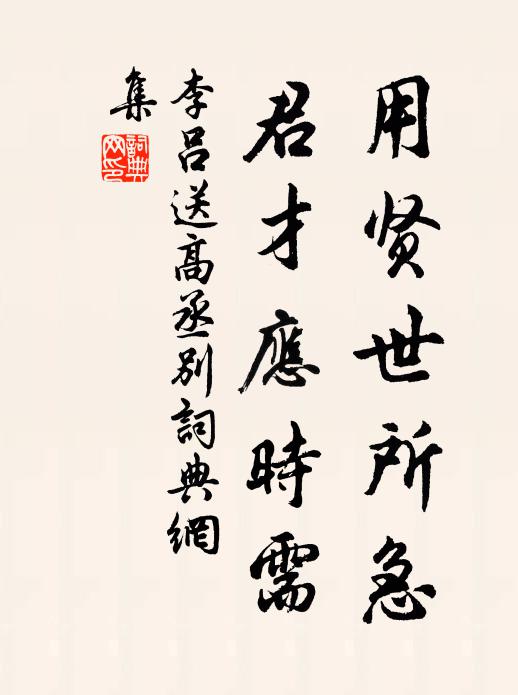 用贤世所急
君才應時需
李呂送高丞别詞典網
集
詞典
网印